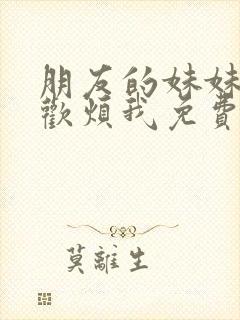 朋友的妹妹
歡煩我免費
莫離生